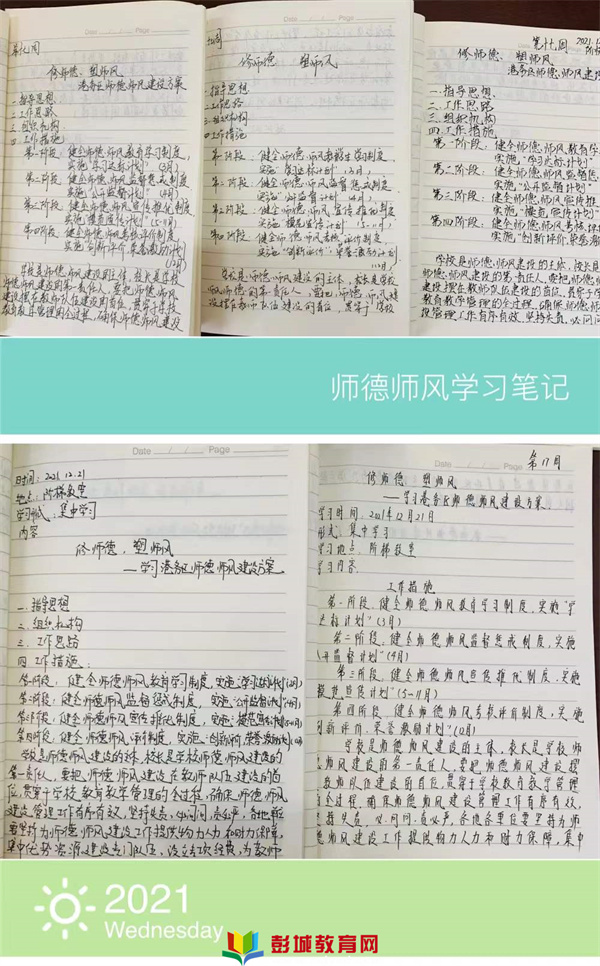 第十七周
修师德、塑师风
港务区师德师风建设方案
一.指导思想
二.工作思路
三.组织机构
四.工作措施
第一阶段:健全师德师风教育学习制度,
实施"学习达标计划"(3月)
第二阶段:健全师德师风监督惩戒制度
实施"公开监督计划"(4月)
第三阶段:健全师德师风宣传推优制度
实施"模范宣传计划"(5-11月)
第四阶段:健全师德师风考核评价制度
实施"创新评价、荣誉激励计划
(12月)
学校是师德师风建设的主体,校长是学校
师德师风建设的第一责任人,要把师德师风
建设摆在教师队伍建设的首位,贯穿于学校
教育教学管理的全过程,确保师德师风建设
Date / / Page
修师德 塑师风
一.指导思想
二.工作思路
三.组织机构
四.工作措施
第一阶段:健全师德师风教育学习制度,
实施"学习达标计划"(3月)
第二阶段:健全师德师风监督惩戒制度
第三阶段:健全师德师风宣传推优制度
实施"模范宣传计划"(5-11月)
第四阶段:健全师德师风考核评价制度
实施"创新评价、荣誉激励计划"
(12月)
学校是师德师风建设的主体,校长是学校
Date Page
第十七周 2021.1
修师德、塑师风
港务区师德师风建设
一.指导思想
二.工作思路
三.组织机构
四.工作措施
第一阶段:健全师德师风教育学
实施"学习达标计划"
第二阶段:健全师德师风监督惩
实施"公开监督计划"
第三阶段:健全师德师风宣传推
实施"模范宣传计划"
第四阶段:健全师德师风考核评
实施"创新评价、荣誉激
学校是师德师风建设的主体,校长是
师德师风建设的第一责任人,要把师德师
建设摆在教师队伍建设的首位,贯穿于学
教育教学管理的全过程,确保师德师风
设管理工作有序有效,坚持失责必问问
师德师风学习笔记
Date / / Page
时间:2021.12.21
地点:阶梯教室
学习形式:集中学习
内容
修师德,塑师风
—学习港务区师德师风建设方案
一.指导思想
二.组织机构
三.工作思路
四.工作措施:
第一阶段:健全师德师风教育学习制度,实施:学习达标计划(3月)
第二阶段:健全师德师风监督惩戒制度,实施:公开监督计划(4月)
第三阶段:健全师德师风宣传推优制度,实施:模范宣传计划(5-11月)
学校是师德师风建设的主体,校长是学校师德师风建设的
第一责任人,要把师德师风建设在教师队伍建设的首
位,贯穿于学校教育教学管理的全过程,确保师德师风
建设管理工作有序有效,坚持失责必问问责必严,各地各单
位要坚持为师德师风建设工作提供有力人力和财力保障,
集中优势资源,建设专门队伍,设立专项经费,为教师
Date / / Page
第17周
修师德、塑师风
——学习港务区师德师风建设方案
学习时间:2021年12月21日
形式:集中学习
学习地点:阶梯教室
学习内容:
工作措施
第一阶段,健全师德师风教育学习制度,实施"学
达标计划"(3月)
第二阶段,健全师德师风监督惩戒制度,实施
公开监督计划"(4月)
第三阶段,健全师德师风宣传推优制度,实施
模范宣传计划"(5-11月)
第四阶段,健全师德师风考核评价制度,实施
创新评价、荣誉激励计划"(12月)
学校是师德师风建设的主体,校长是学校师
德师风建设的第一责任人,要把师德师风建设摆
教师队伍建设的首位,贯穿于学校教育教学管理
全过程,确保师德师风建设管理工作有序有效,
坚持失责必问问责必严,各地各单位要坚持为师
德师风建设工作提供有力人力和财力保障,集中
2021
Wednesday
彭城教育网